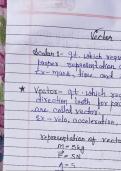 Vector
Scalar :- qt. which requ
proper representation a
Ex- mass, time and
* Vector - qt. which re
direction both for pro
are called vector.
Ex - velo, acceleration,
representation of vector
M = 5kg
F = 5N
A = 5